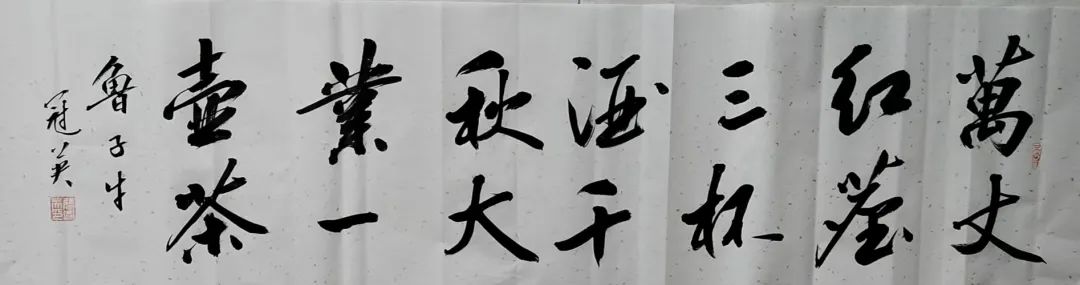 萬丈
红塵
三杯
酒千
秋大
業一
壺茶
魯子牛
冠英